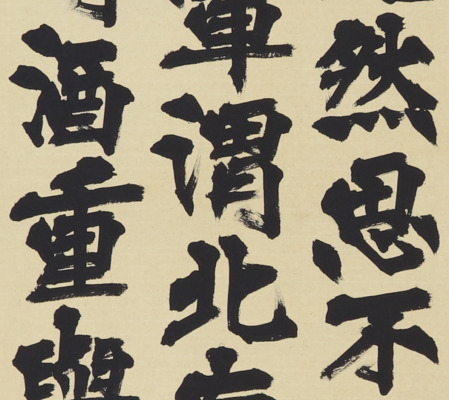 然思不
軍渭北
酒重與